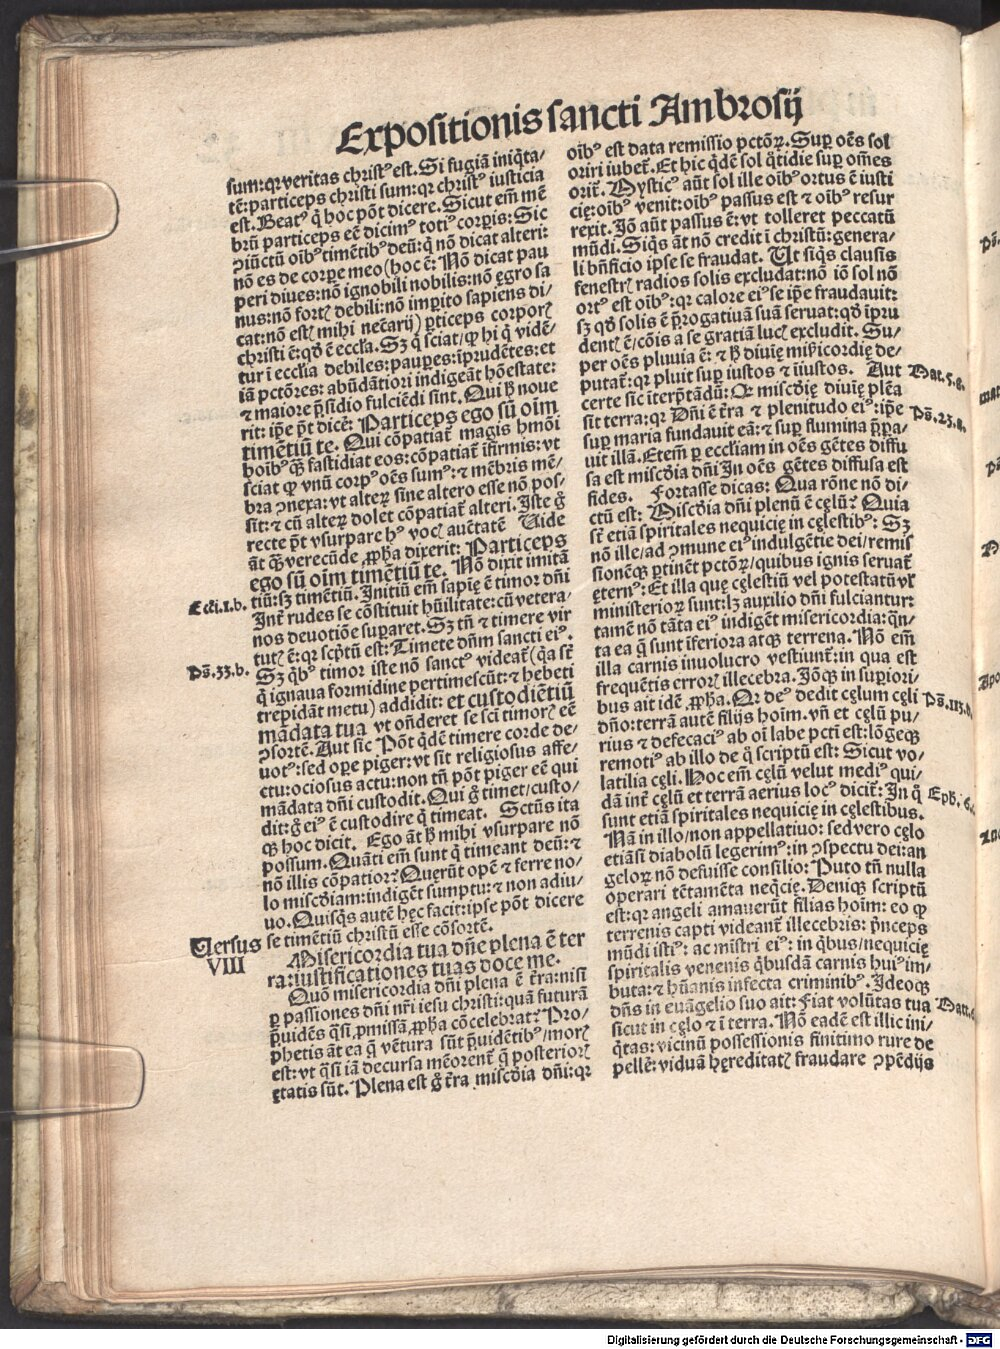 Expositionis sancti Ambrosij
sum: qꝛ veritas christꝰ est. Si fugiā iniq̇ta/
tē: particeps christi sum: qꝛ christꝰ iusticia
est. Beatꝰ q̇ hoc pōt dicere. Sicut em̄ mē
brū particeps eē dicimꝰ totiꝰ corꝑis: Sic
ꝯiūctū oībꝰ timētibꝰ deū: q̇ nō dicat alteri:
nō es de corꝑe meo (hoc ē: Nō dicat pau
peri diues: nō ignobili nobilis: nō ęgro sa
nus: nō fortꝭ debili: nō imp̄ito sapiens di/
cat: nō estꝭ mihi nec̄arij) ꝑticeps corporꝭ
christi ē: qd̄ ē eccl̄a. Sꝫ q̇ sciat/ ꝙ hi q̇ vidē/
tur ī ecclīa debiles: pauꝑes: īprudētes: et
iā pctōres: abūdātiori indigeāt hōestate:
⁊ maiore p̄sidio fulciēdi sint. Qui ꝧ noue
rit: ip̄e p̄t dicē: Particeps ego sū oīm
timētiū te. Qui cōpatiat̄ magis hmōi
hoībꝰ qꝫ fastidiat eos: cōpatiat̄ īfirmis: vt
sciat ꝙ vnū corpꝰ oēs sumꝰ: ⁊ mēbris mē/
bra ꝯnexa: vt alteꝝ sine altero esse nō pos/
sit: ⁊ cū alteꝝ dolet cōpatiat̄ alteri. Iste g̊
recte p̄t vsurpare hꝰ vocꝭ auc̄tatē Uide
āt qꝫ verecūde ꝓpha dixerit: Particeps
ego sū oīm timētiū te. Nō dixit imitā
Ecc̄i.1.b.
tiū: sꝫ timētiū. Initiū em̄ sapię ē timor dn̄i
Int̄ rudes se cōstituit hūilitate: cū vetera/
nos deuotiōe suꝑaret. Sꝫ tn̄ ⁊ timere vir
tutꝭ ē: qꝛ scp̄tū est: Timete dn̄m sancti eiꝰ.
Ps̄.33.b.
Sꝫ q̇bꝰ timor iste nō sanctꝰ videat̄ (q̇a st̄
q̇ ignaua formidine pertimescūt: ⁊ hebeti
trepidāt metu) addidit: et custodiētiū
mādata tua vt on̄deret se sc̄i timorꝭ eē
ꝯsortē. Aut sic Pōt qdē timere corde de/
uotꝰ: sed oꝑe piger: vt sit religiosus affe/
ctu: ociosus actu: non tn̄ pōt piger eē qui
mādata dn̄i custodit. Qui g̊ timet/ custo/
dit: g̊ eiꝰ ē custodire q̇ timeat. Sctūs ita
qꝫ hoc dicit. Ego āt ꝧ mihi vsurpare nō
possum. Quāti em̄ sunt q̇ timeant deū: ⁊
nō illis cōpatior? Quęrūt opē ⁊ ferre no/
lo misc̄diam: indigēt sumptu: ⁊ non adiu/
uo. Quisq̇s autē hęc facit: ipse pōt dicere
se timētiū christū esse cōsortē.
Uersus VIII
Misericordia tua dn̄e plena ē ter
ra: iustificationes tuas doce me.
Quō misericordia dn̄i plena ē t̄ra: nisi
ꝑ passiones dn̄i nr̄i iesu christi: quā futurā
p̄uidēs q̇si ꝓmissā ꝓpha cōcelebrat? Pro/
phetis āt ea q̄ vētura sūt p̄uidētibꝰ/ morꝭ
est: vt q̇si iā decursa mēorent̄ q̄ posteriorꝭ
ętatis sūt. Plena est g̊ t̄ra misc̄dia dn̄i: qꝛ
oībꝰ est data remissio pctōꝝ. Suꝑ oēs sol
oriri iubet̄. Et hic q̇dē sol q̇tidie suꝑ om̄es
orit̄. Mysticꝰ aūt sol ille oībꝰ ortus ē iusti
cię: oībꝰ venit: oībꝰ passus est ⁊ oībꝰ resur
rexit. Iō aūt passus ē: vt tolleret peccatū
mūdi. Siq̇s āt nō credit ī christū: genera/
li bn̄ficio ipse se fraudat. Ut siq̇s clausis
fenestrꝭ radios solis excludat: nō iō sol nō
ortꝰ est oībꝰ: qꝛ calore eiꝰ se ip̄e fraudauit:
sꝫ qd̄ solis ē p̄rogatiuā suā seruat: qd̄ īpru
dentꝭ ē/ cōis a se gratiā lucꝭ excludit. Su/
Mat.5.g.
per oēs pluuia ē: ⁊ ꝧ diuię mīsericordię de/
putat̄: qꝛ pluit suꝑ iustos ⁊ iiustos. Aut
certe sic īterp̄tādū: Qꝛ misc̄dię diuię plēa
Ps̄.23.a.
sit terra: qꝛ Dn̄i ē t̄ra ⁊ plenitudo eiꝰ: ip̄e
suꝑ maria fundauit eā: ⁊ suꝑ flumina p̄ꝑa/
uit illā. Etem̄ ꝑ eccliam in oēs gētes diffu
sa est misc̄dia dn̄i In oēs gētes diffusa est
fides. Fortasse dicas: Qua rōne nō di/
ctū est: Misc̄dia dn̄i plenū ē cęlū? Quia
st̄ etiā spiritales nequicię in cęlestibꝰ: Sꝫ
nō ille/ ad ꝯmune eiꝰ indulgētie dei/ remis
sionēqꝫ ꝑtinēt pctōꝝ/ quibus ignis seruat̄
ęternꝰ: Et illa quę cęlestiū vel potestatū vl̄
ministerioꝝ sunt: lꝫ auxilio dn̄i fulciantur:
tamē nō tāta eiꝰ indigēt misericordia: q̄n/
ta ea q̄ sunt īferiora atqꝫ terrena. Nō em̄
illa carnis inuolucro vestiunt̄: in qua est
frequētis errorꝭ illecebra. Iōqꝫ in suꝑiori/
Ps̄.113.
bus ait idē ꝓpha. Qꝛ deꝰ dedit cęlum cęli
dn̄o: terrā autē filijs hoīm. vn̄ et cęlū pu/
rius ⁊ defecaciꝰ ab oī labe pcti est: lōgeqꝫ
remotiꝰ ab illo de q̇ scriptū est: Sicut vo/
latilia cęli. Hoc em̄ cęlū velut mediꝰ qui/
Eph.6.
dā int̄ cęlū et terrā aerius locꝰ dicit̄: In q̇
sunt etiā spiritales nequicię in cęlestibus.
Nā in illo/ non appellatiuo: sed vero cęlo
etiāsi diabolū legerimꝰ: in ꝯspectu dei: an
geloꝝ nō defuisse consilio: Puto tn̄ nulla
operari tētamēta neq̇cię. Deniqꝫ scriptū
est: qꝛ angeli amauerūt filias hoīm: eo ꝙ
terrenis capti videant̄ illecebris: p̄nceps
mūdi istiꝰ: ac mīstri eiꝰ: in q̇bus/ nequicię
spiritalis venenis q̇busdā carnis huiꝰ im/
buta: ⁊ hūanis infecta criminibꝰ. Ideoqꝫ
Mat.6.
dn̄s in euāgelio suo ait: Fiat volūtas tua
sicut in cęlo ⁊ ī terra. Nō eadē est illic ini/
q̇tas: vicinū possessionis finitimo rure de
pellē: viduā hęreditatꝭ fraudare ꝯpēdijs
Digitalisierung gefördert durch die Deutsche Forschungsgemeinschaft - DFG